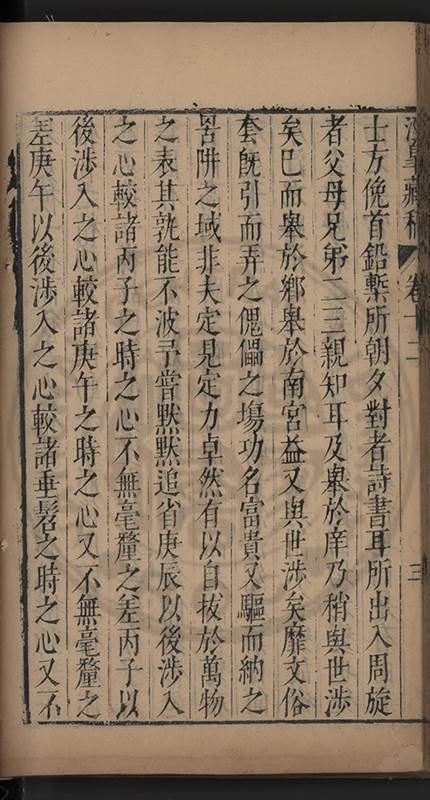 涇皋藏稿 卷十二 三
士方俛首鉛槧所朝夕對者詩書耳所出入周旋
者父母兄弟二三親知耳及舉於庠乃稍與世涉
矣已而舉於鄉舉於南宮益又與世涉矣靡文俗
套旣引而弄之傀儡之塲功名富貴又驅而納之
罟阱之域非夫定見定力卓然有以自拔於萬物
之表其孰能不波予嘗默默追省庚辰以後涉入
之心較諸丙子之時之心不無毫釐之差丙子以
後涉入之心較諸庚午之時之心又不無毫釐之
差庚午以後涉入之心較諸垂髫之時之心又不